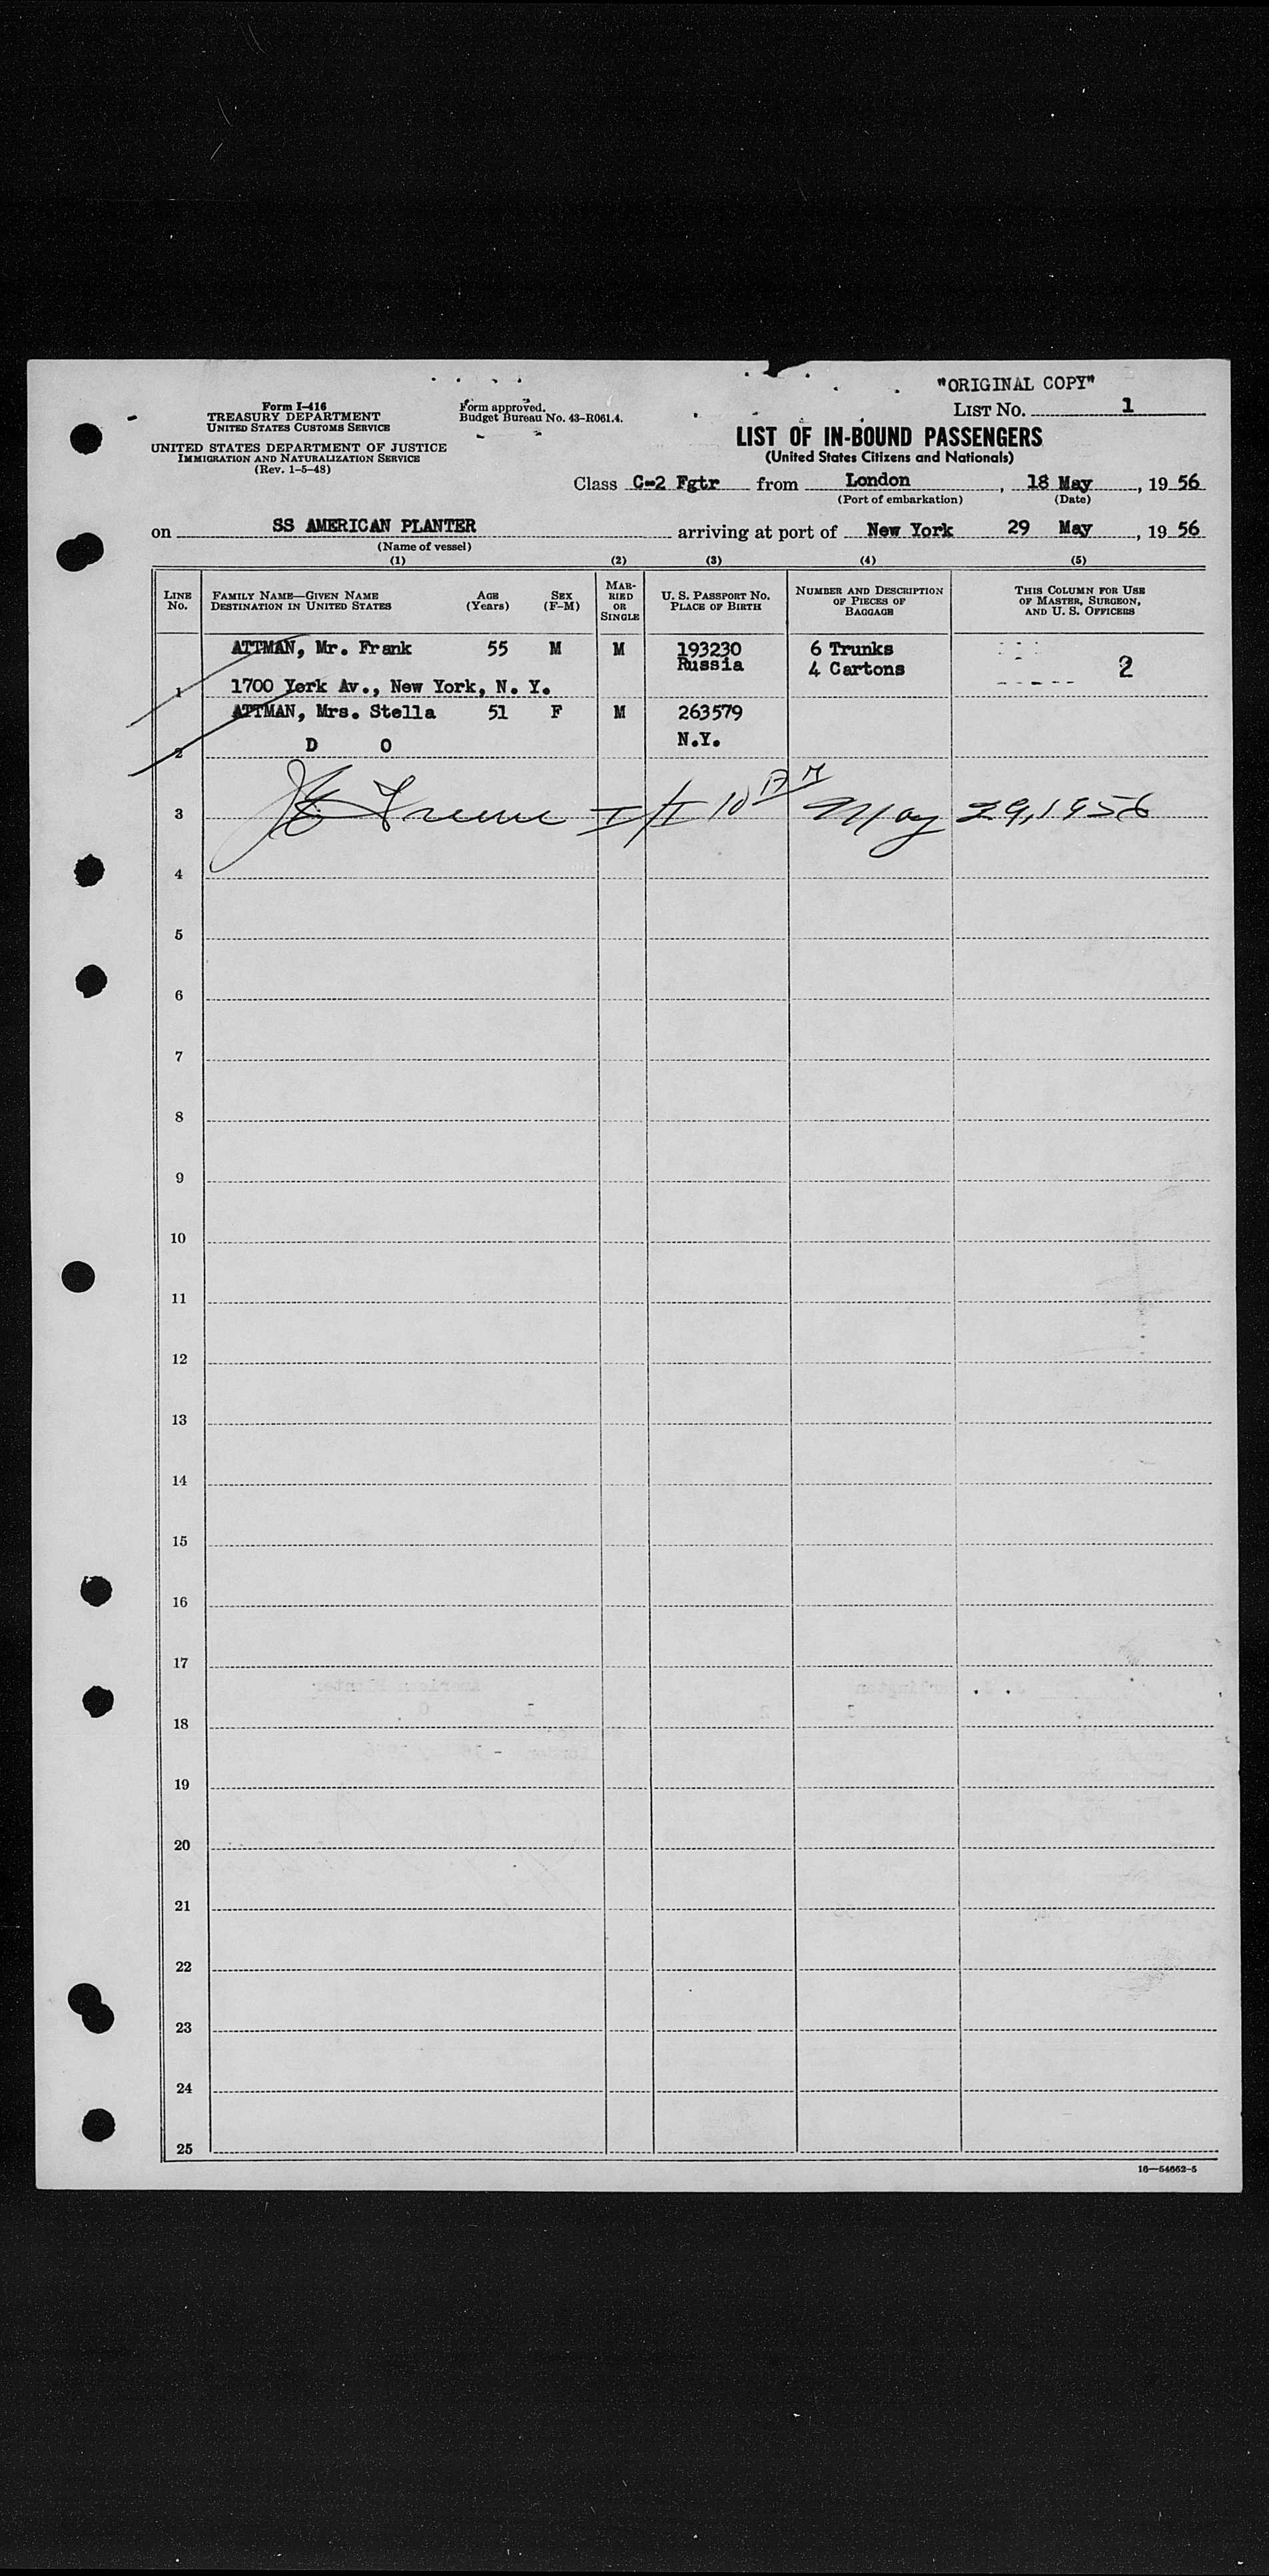 "ORIGINAL COPY"
Form I-416
TREASURY DEPARTMENT
UNITED STATES CUSTOMS SERVICE
UNITED STATES DEPARTMENT OF JUSTICE
IMMIGRATION AND NATURALIZATION SERVICE
(Rev. 1-5-48)
Form approved.
Budget Bureau No. 43-R061.4.
LIST No. 1
LIST OF IN-BOUND PASSENGERS
(United States Citizens and Nationals)
Class C-2 Fgtr from London, 18 May, 19 56
(Port of embarkation) (Date)
on SS AMERICAN PLANTER arriving at port of New York 29 May, 19 56
(Name of vessel)
(1) (2) (3) (4) (5)
LINE No. FAMILY NAME—GIVEN NAME DESTINATION IN UNITED STATES AGE (Years) SEX (F-M) MARRIED OR SINGLE U. S. PASSPORT No. PLACE OF BIRTH NUMBER AND DESCRIPTION OF PIECES OF BAGGAGE THIS COLUMN FOR USE OF MASTER, SURGEON, AND U. S. OFFICERS
ATTMAN, Mr. Frank 55 M M 193230 6 Trunks
Russia 4 Cartons 2
1 1700 York Av., New York, N. Y.
ATTMAN, Mrs. Stella 51 F M 263579
2 D O N.Y.
3 I/I 10 AM May 29, 1956
4
5
6
7
8
9
10
11
12
13
14
15
16
17
18
19
20
21
22
23
24
25
16—54662-5